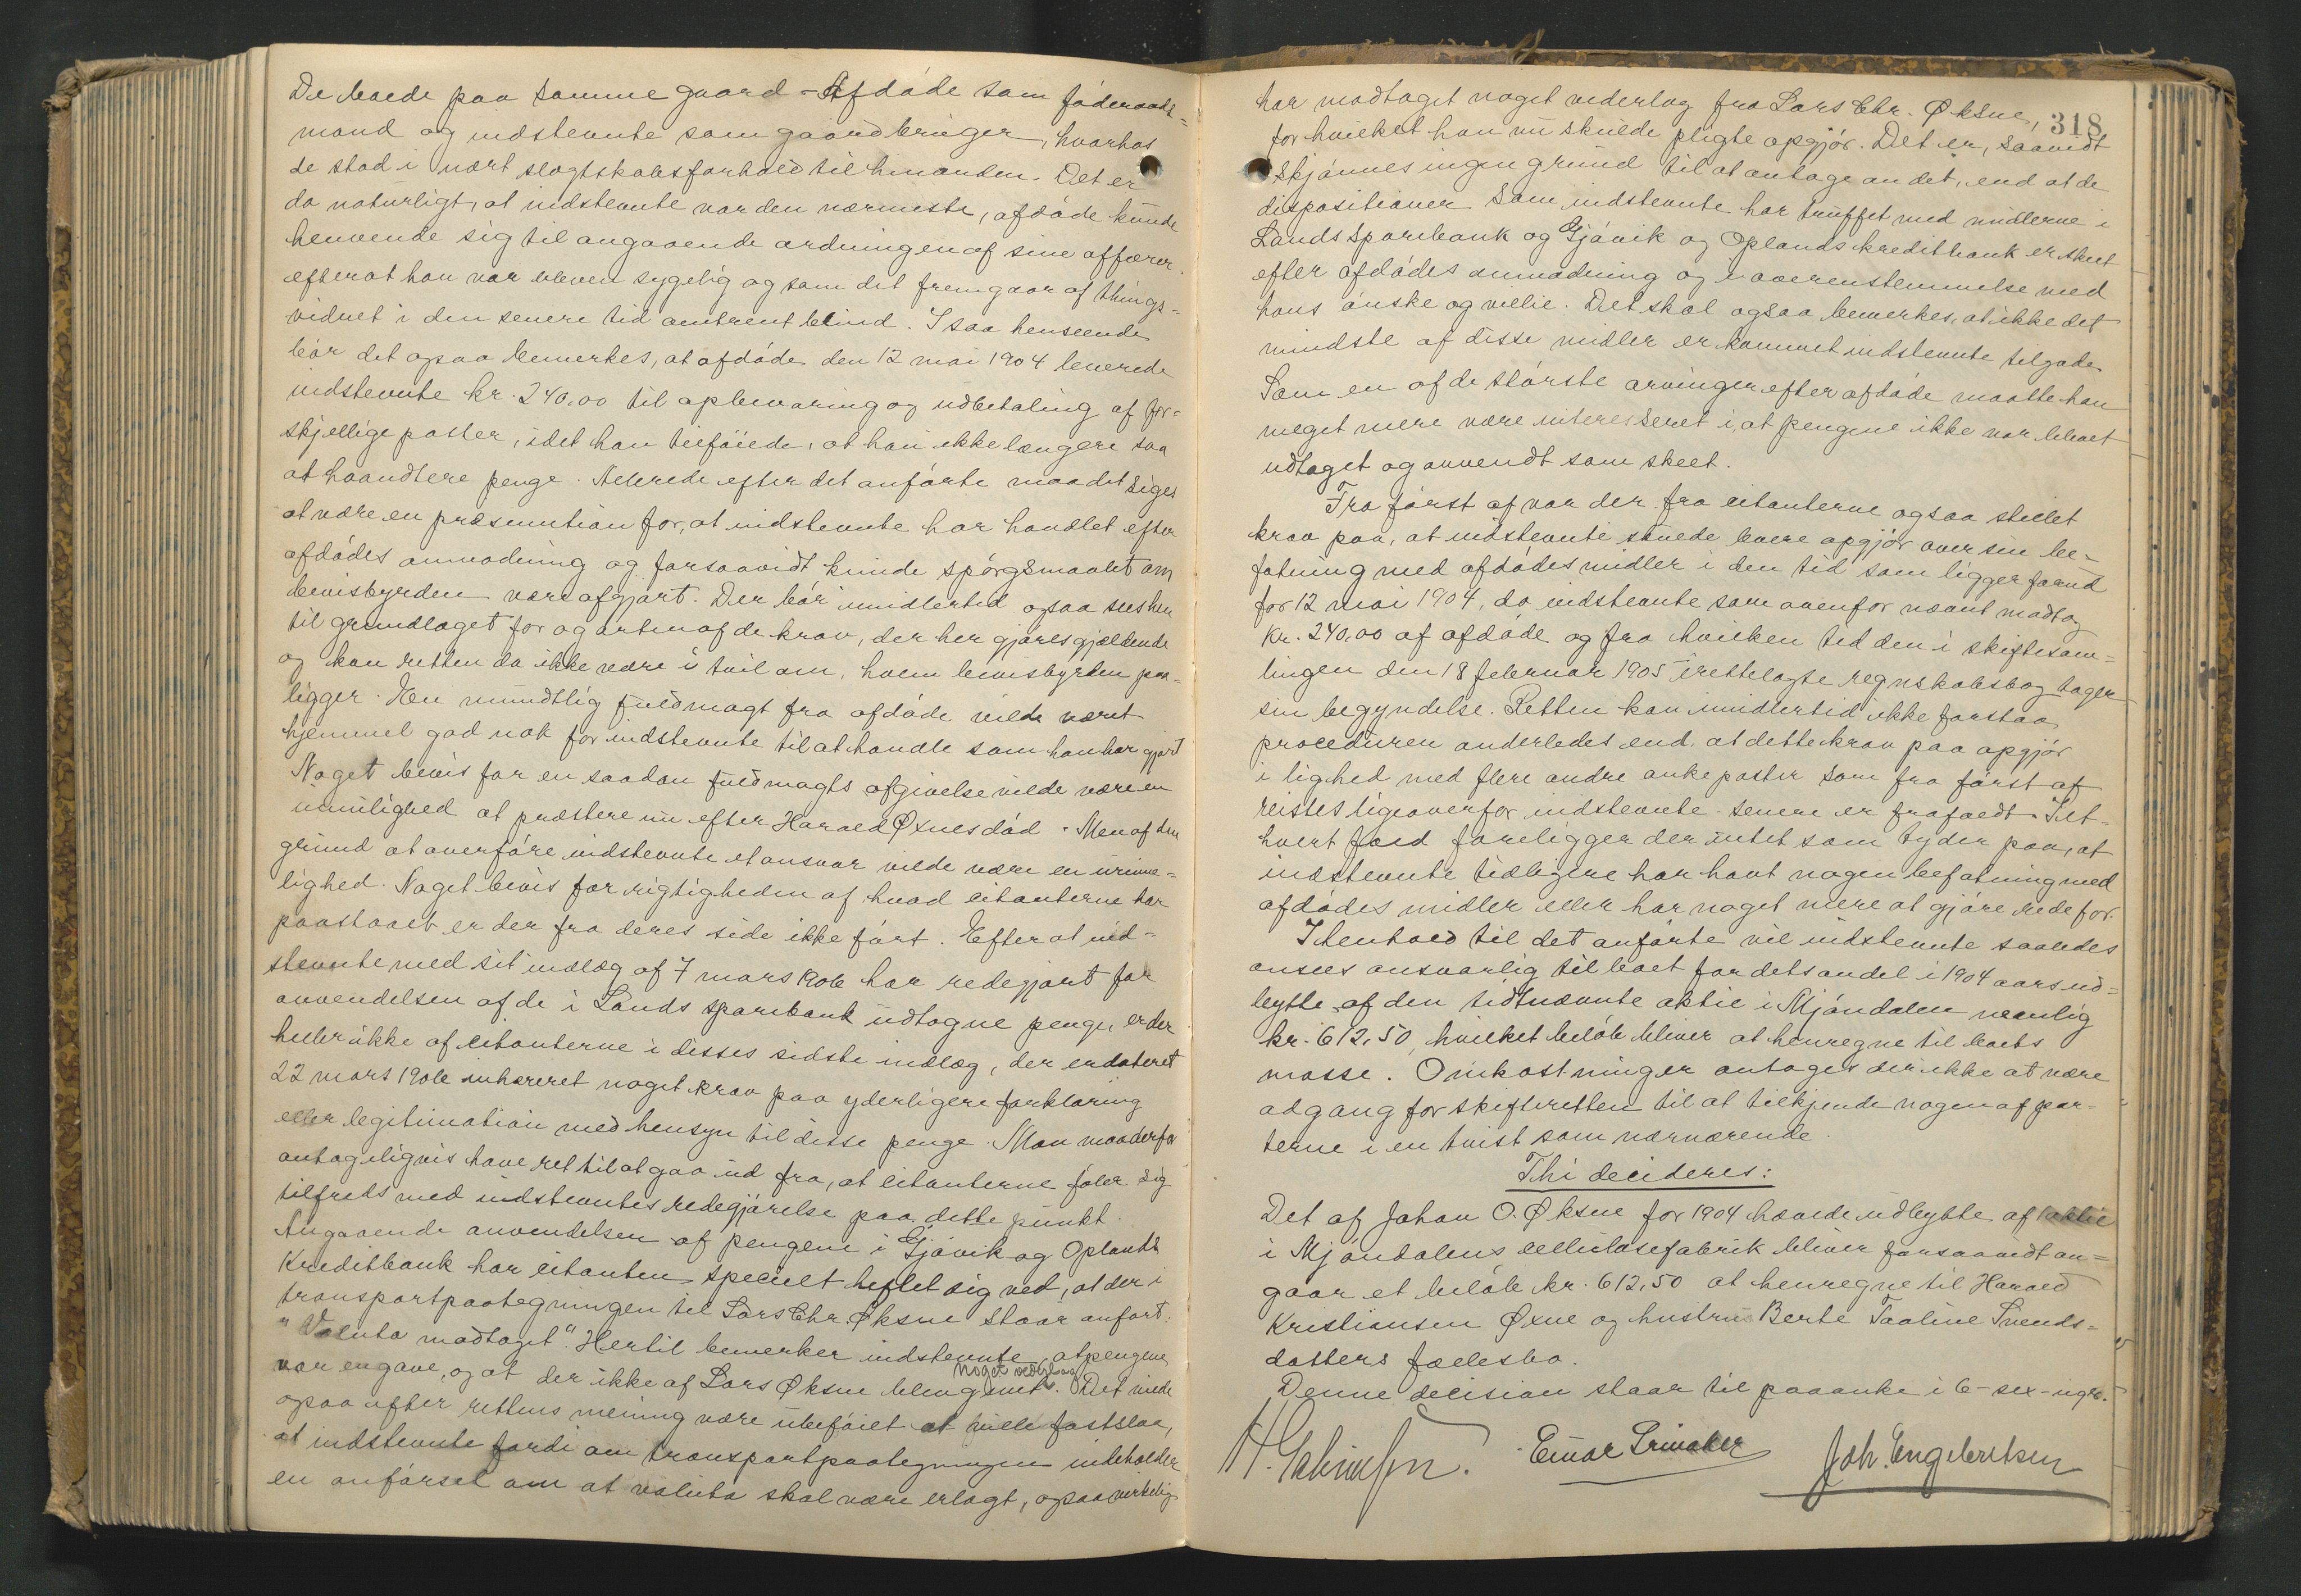 De boede paa samme gaard - Afdøde som føderaads=
mand og indstevnte som gaardbruger, hvorhos
de stod i nært slægtskabsforhold til hinanden. Det er
da naturligt, at indstevnte var den nærmeste, afdøde kunde
henvende sig til angaaende ordningen af sine affærer
efterat han var bleven sygelig og som det fremgaar af things=
vidnet i den senere tid omtrent blind. I saa henseende
bør det ogsaa bemerkes, at afdøde den 12 mai 1904 leverede
indstevnte kr. 240.00 til opbevaring og udbetaling af for=
skjellige poster, idet han tilføiede, at han ikke længere saa
at haandtere penge. Allerede efter det anførte maa det siges
at være en præsumtion for, at indstevnte har handlet efter
afdødes anmodning og forsaavidt kunde spørgsmaalet om
bevisbyrden være afgjort. Der bør imidlertid ogsaa sees hen
til grundlaget for og arten af de krav, der her gjøres gjældende
og kan retten da ikke være i tvil om, hvem bevisbyrden paa-
ligger. En mundtlig fuldmagt fra afdøde vilde været
hjemmel god nok for indstevnte til at handle som han har gjort
Noget bevis for en saadan fuldmagts afgivelse vilde være en
umulighed at præstere nu efter Harald Øxnes død. Men af den
grund at overføre indstevnte et ansvar vilde være en urime=
lighed. Noget bevis for rigtigheden af hvad citanterne har
paastaaet er der fra deres side ikke ført. Efter at ind=
stevnte med sit indlæg af 7 mars 1906 har redegjort for
anvendelsen af de i Lands sparebank udtagne penge, er der
heller ikke af citanterne i disses sidste indlæg, der er dateret
22 mars 1906 inhæreret noget krav paa yderligere forklaring
eller legitimation med hensyn til disse penge. Man maa derfor
antageligvis have ret til at gaa ud fra, at citanterne føler sig
tilfreds med indstevntes redegjørelse paa dette punkt.
Angaaende anvendelsen af pengene i Gjøvik og Oplands
Kreditbank har citanten specielt heftet sig ved, at der i
transportpaategningen til Lars Chr. Øksne staar anført:
"Valuta modtaget". Hertil bemerker indstevnte, at pengene
var en gave, og at der ikke af Lars Øksne blev givet noget vederlag. Det vilde
ogsaa efter rettens mening være ubeføiet at ville fastslaa,
at indstevnte fordi om transportpaategningen indeholder
en anførsel om at valuta skal være erlagt, ogsaa virkelig
318
har modtaget noget vederlag fra Lars Chr. Øksne,
for hvilket han nu skulde pligte opgjør. Det er, saavidt
skjønnes ingen grund til at antage andet, end at de
dispositioner som indstevnte har truffet med midlerne i
Lands Sparebank og Gjøvik og Oplands kreditbank er skeet
efter afdødes anmodning og i overenstemmelse med
hans ønske og villie. Det skal ogsaa bemerkes, at ikke det
mindste af disse midler er kommet indstevnte tilgode.
Som en af de største arvinger efter afdøde maatte han
meget mere være interesseret i, at pengene ikke var blevet
udtaget og anvendt som skeet.
Fra først af var der fra citanterne ogsaa stillet
krav paa, at indstevnte skulde levere opgjør over sin be-
fatning med afdødes midler i den tid som ligger forud
for 12 mai 1904, da indstevnte som ovenfor nævnt modtog
Kr. 240.00 af afdøde og fra hvilken tid den i skiftesam=
lingen den 18 februar 1905 irettelagte regnskabsbog tager
sin begyndelse. Retten kan imidlertid ikke forstaa
proceduren anderledes end, at dette krav paa opgjør
i lighed med flere andre ankeposter som fra først af
reistes ligeoverfor indstevnte senere er frafaldt. I et-
hvert fald foreligger der intet som tyder paa, at
indstevnte tidligere har havt nogen befatning med
afdødes midler eller har noget mere at gjøre rede for.
I henhold til det anførte vil indstevnte saaledes
ansees ansvarlig til boet for dets andel i 1904 aars ud=
bytte af den tidtnævnte aktie i Mjøndalen nemlig
kr. 612,50, hvilket beløb bliver at henregne til boets
masse. Omkostninger antages der ikke at være
adgang for skifteretten til at tilkjende nogen af par-
terne i en tvist som nærværende.
Thi decideres:
Det af Johan O. Øksne for 1904 hævede udbytte af 1 aktie
i Mjøndalens cellulosefabrik bliver forsaavidt an=
gaar et beløb kr. 612,50 at henregne til Harald
Kristiansen Øxne og hustru Berte Taaline Svends=
datters fællesbo.
Denne decision staar til paaanke i 6 - sex - uger.
Einar Joh. Engebretsen